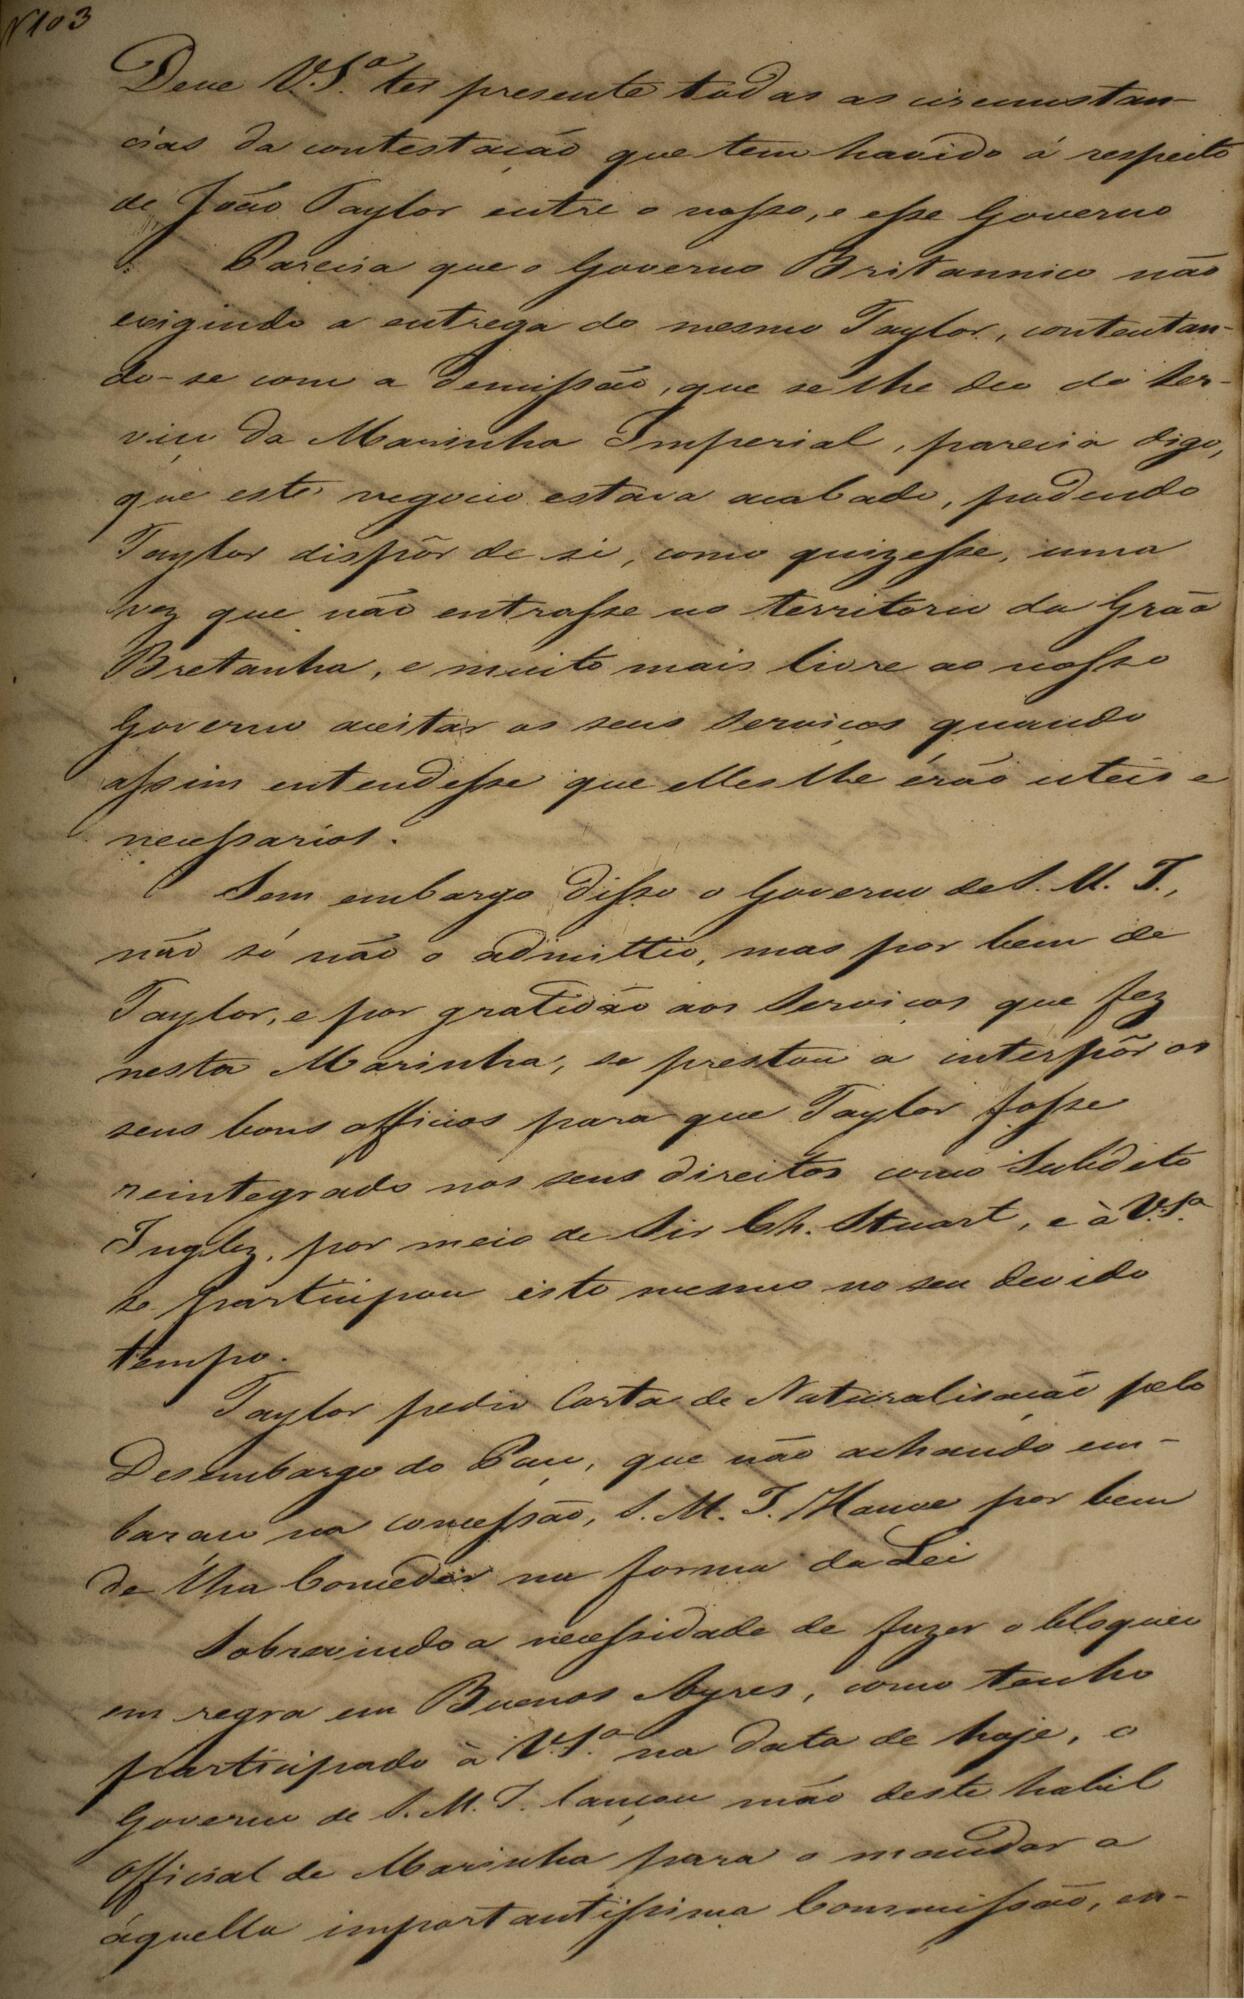 Nº 103
Deve V.S.ª ter presente todas as circumstan-
cias da contestação que tem havido á respeito
de João Taylor entre o nosso, e esse Governo
Parecia que o Governo Britannico não
exigindo a entrega do mesmo Taylor, contentan-
do-se com a demissão, que se lhe deo do Ser-
viço da Marinha Imperial, parecia digo,
que este negocio estava acabado, podendo
Taylor dispôr de si, como quizesse, uma
vez que não entrasse no territorio da Grãa
Bretanha, e muito mais livre ao nosso
Governo aceitar os seus serviços quando
assim entendesse que elles lhe érão uteis e
necessarios.
Sem embargo disso o Governo de S. M. I.,
não só não o admittio, mas por bem de
Taylor, e por gratidão aos Serviços que fez
nesta Marinha, se prestou a interpôr os
seus bons officios para que Taylor fosse
reintegrado nos seus direitos como Subdito
Inglez, por meio de Sir Ch. Stuart, e à V.S.ª
se participou isto mesmo no seu devido
tempo.
Taylor pedio Carta de Naturalisação pelo
Desembargo do Paço, que não achando em-
baraço na concessão, S. M. I. Houve por bem
de lha Conceder na forma da Lei
Sobrevindo a necessidade de fazer o bloqueio
em regra em Buenos Ayres, como tenho
participado à V.S.ª na data de hoje, o
Governo de S. M. I. lançou mão deste habil
Official de Marinha para o mandar a
áquella importantissima Commissão, en-